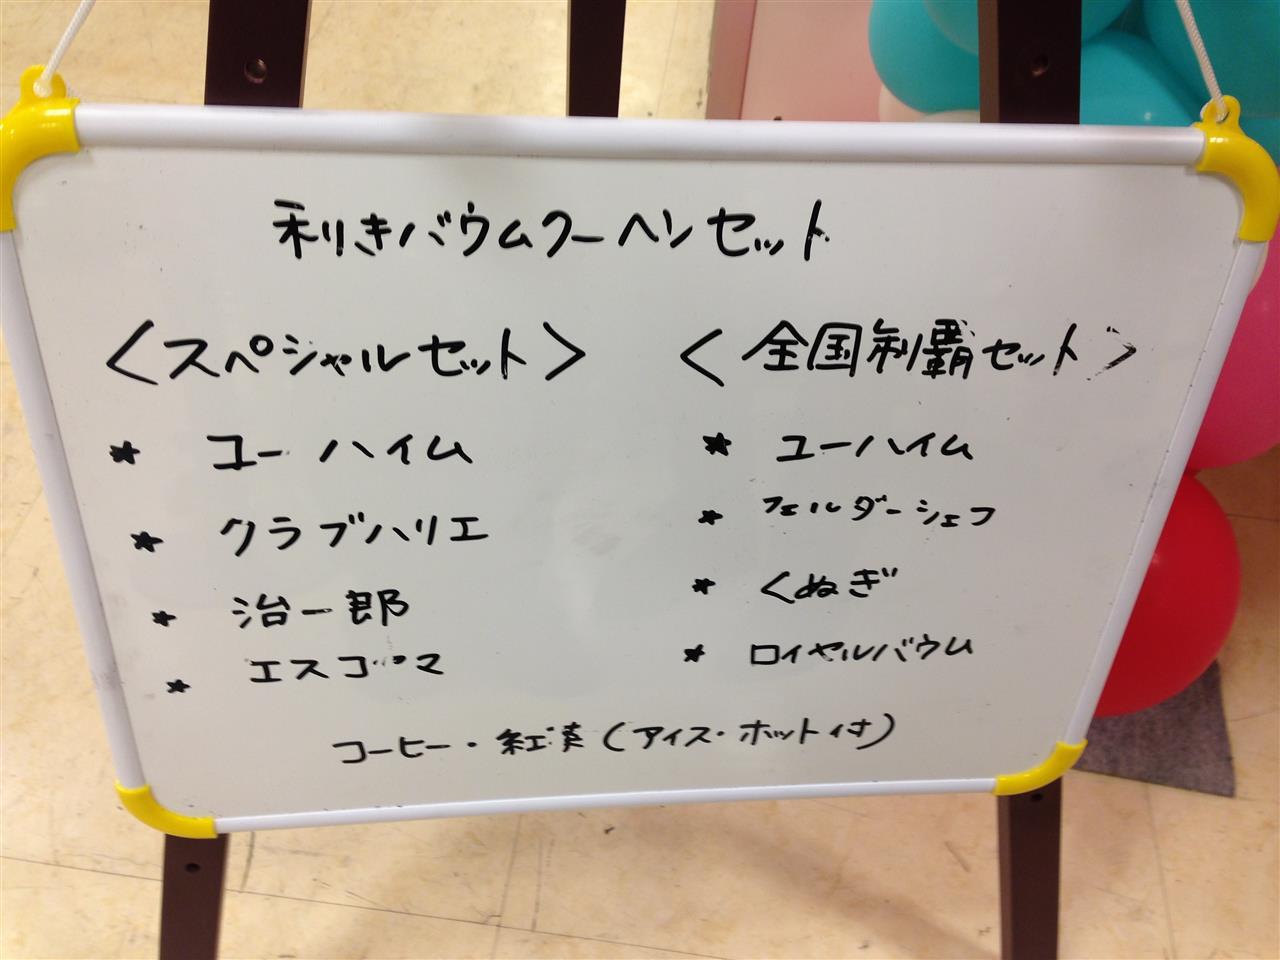 利きバウムクーヘンセット
<スペシャルセット>
* ユーハイム
* クラブハリエ
* 治一郎
* エスコヤマ
<全国制覇セット>
* ユーハイム
* フェルダーシェフ
* くぬぎ
* ロイヤルバウム
コーヒー・紅茶(アイス・ホット付)